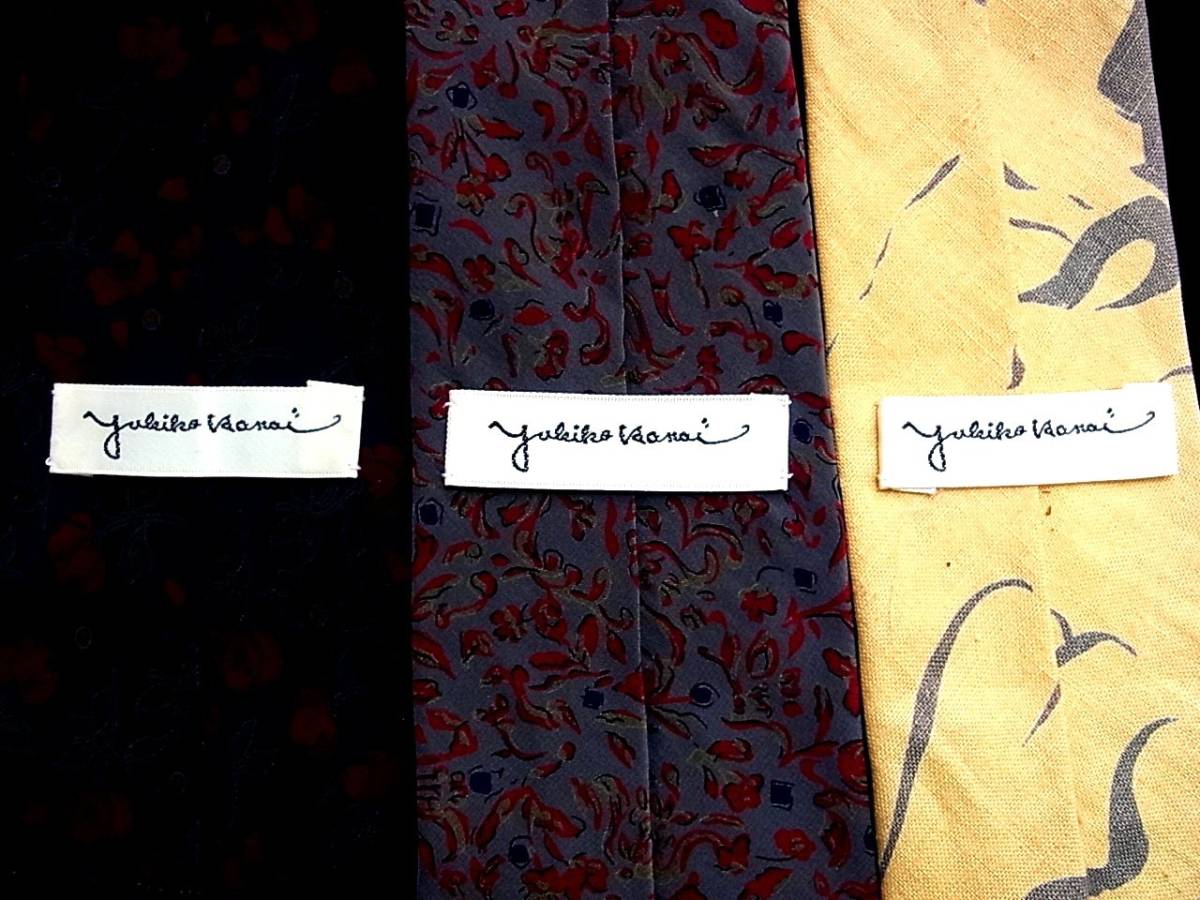 Yukiko Hanai
Yukiko Hanai
Yukiko Hanai